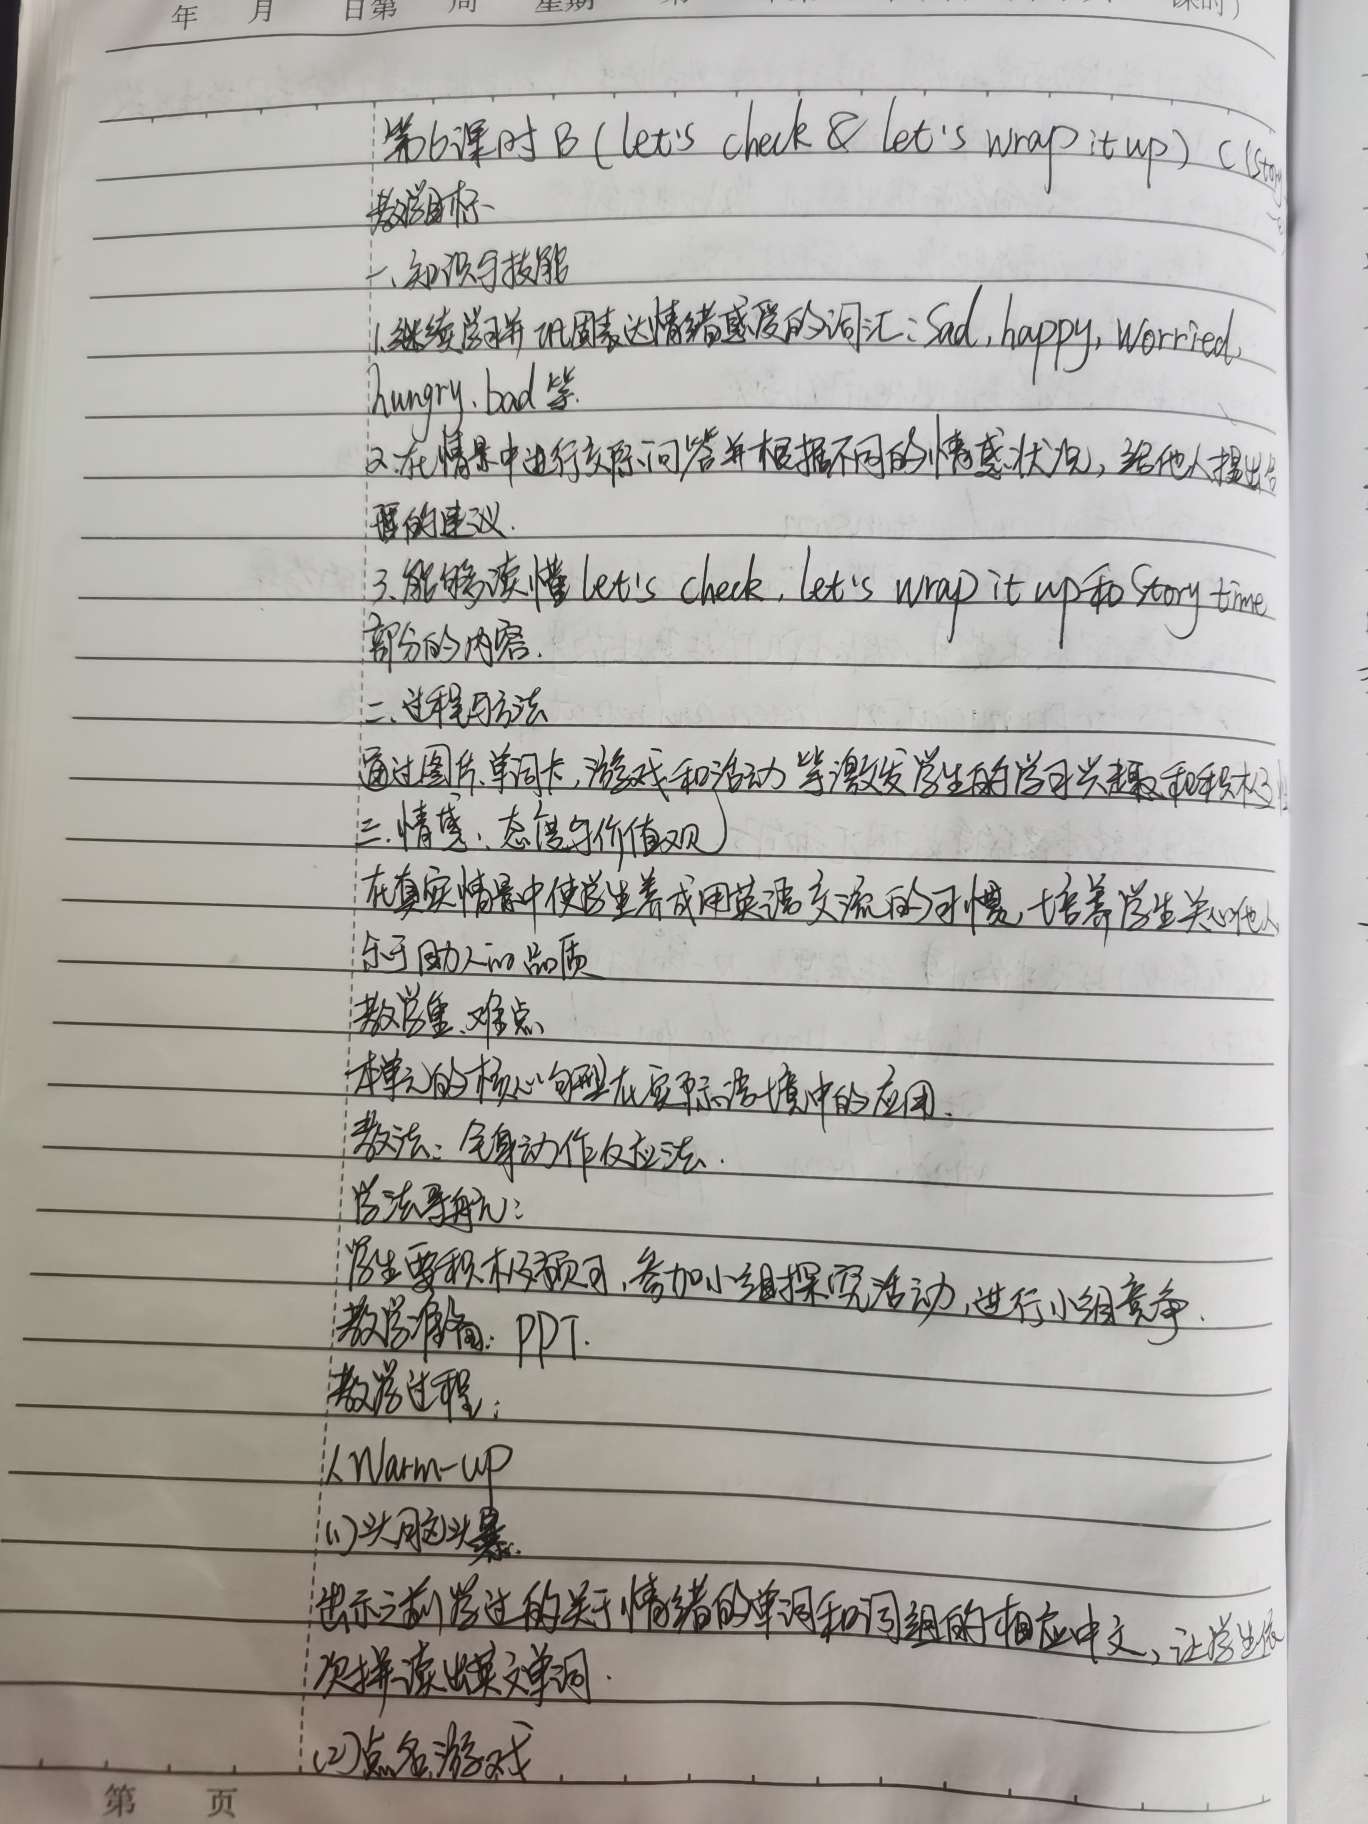 年 月 日第 周 星期 第 课时)
第6课时 B (let's check & let's wrap it up) C (Story
教学目标
一、知识与技能
1.继续学习并巩固表达情绪感受的词汇:Sad, happy, worried,
hungry, bad 等.
2.在情景中进行交际问答并根据不同的情感状况,给他人提出合
理的建议.
3.能够读懂 let's check, let's wrap it up 和 Story time
部分的内容.
二、过程与方法
通过图片、单词卡,游戏和活动等激发学生的学习兴趣和积极性
三.情感、态度与价值观
在真实情景中使学生养成用英语交流的习惯,培养学生关心他人
乐于助人的品质
教学重、难点
本单元的核心句型在实际语境中的应用.
教法:全身动作反应法.
学法导航:
学生要积极预习,参加小组探究活动,进行小组竞争.
教学准备:PPT.
教学过程:
1.Warm-up
(1)头脑风暴.
出示之前学过的关于情绪的单词和词组的相应中文,让学生依
次拼读出英文单词.
(2)点名游戏
第 页